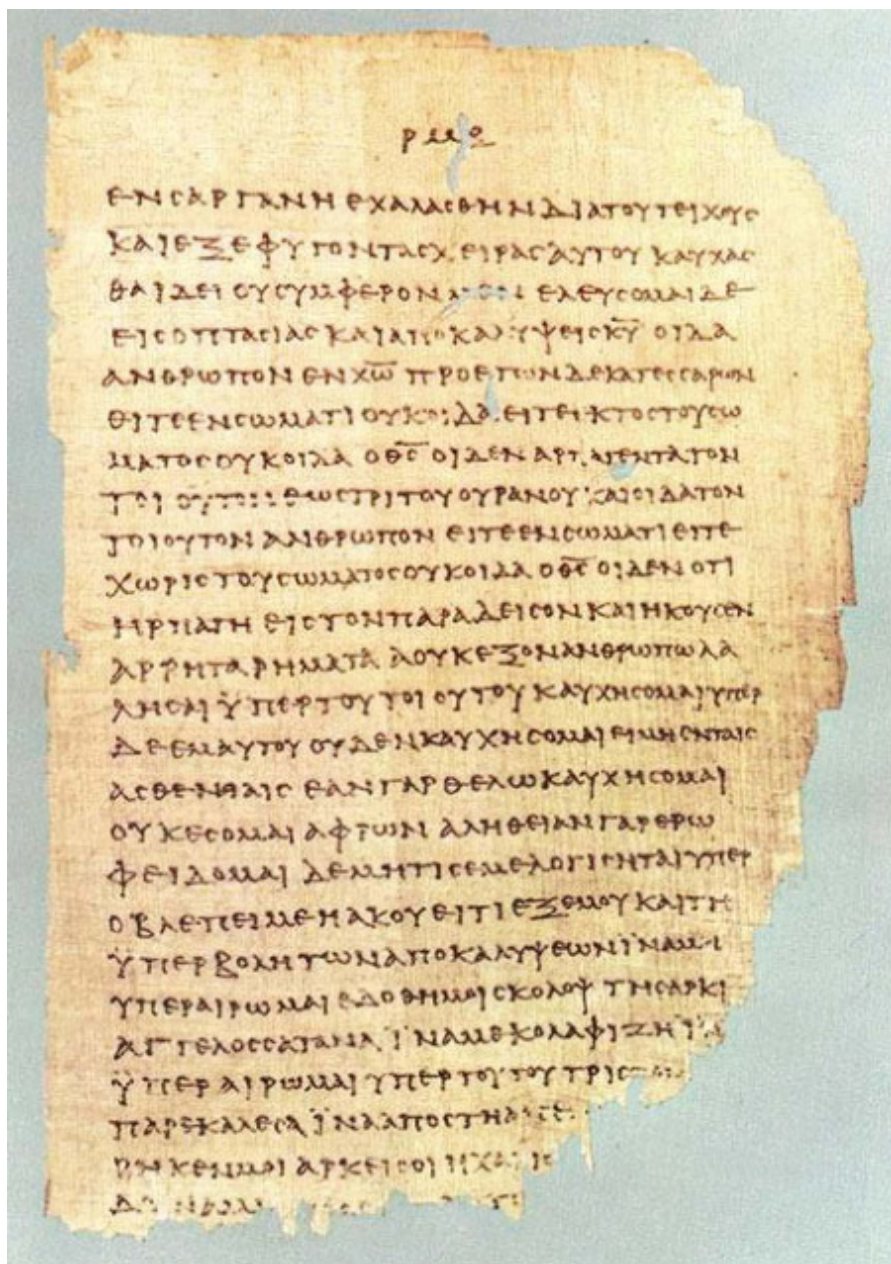 ρμο
ΕΝ ϹΑΡΓΑΝΗ ΕΧΑΛΑϹΘΗΝ ΔΙΑ ΤΟΥ ΤΕΙΧΟΥϹ
ΚΑΙ ΕΞΕΦΥΓΟΝ ΤΑϹ ΧΕΙΡΑϹ ΑΥΤΟΥ ΚΑΥΧΑϹ
ΘΑΙ ΔΕΙ ΟΥ ϹΥΜΦΕΡΟΝ ΕΛΕΥϹΟΜΑΙ ΔΕ
ΕΙϹ ΟΠΤΑϹΙΑϹ ΚΑΙ ΑΠΟΚΑΛΥΨΕΙϹ Κ̅Υ̅ ΟΙΔΑ
ΑΝΘΡΩΠΟΝ ΕΝ Χ̅Ω̅ ΠΡΟ ΕΤΩΝ ΔΕΚΑΤΕϹϹΑΡΩΝ
ΕΙΤΕ ΕΝ ϹΩΜΑΤΙ ΟΥΚ ΟΙΔΑ ΕΙΤΕ ΕΚΤΟϹ ΤΟΥ ϹΩ
ΜΑΤΟϹ ΟΥΚ ΟΙΔΑ Ο Θ̅Ϲ̅ ΟΙΔΕΝ ΑΡΠΑΓΕΝΤΑ ΤΟΝ
ΤΟΙΟΥΤΟΝ ΕΩϹ ΤΡΙΤΟΥ ΟΥΡΑΝΟΥ ΚΑΙ ΟΙΔΑ ΤΟΝ
ΤΟΙΟΥΤΟΝ ΑΝΘΡΩΠΟΝ ΕΙΤΕ ΕΝ ϹΩΜΑΤΙ ΕΙΤΕ
ΧΩΡΙϹ ΤΟΥ ϹΩΜΑΤΟϹ ΟΥΚ ΟΙΔΑ Ο Θ̅Ϲ̅ ΟΙΔΕΝ ΟΤΙ
ΗΡΠΑΓΗ ΕΙϹ ΤΟΝ ΠΑΡΑΔΕΙϹΟΝ ΚΑΙ ΗΚΟΥϹΕΝ
ΑΡΡΗΤΑ ΡΗΜΑΤΑ Α ΟΥΚ ΕΞΟΝ ΑΝΘΡΩΠΩ ΛΑ
ΛΗϹΑΙ ΫΠΕΡ ΤΟΥ ΤΟΙΟΥΤΟΥ ΚΑΥΧΗϹΟΜΑΙ ΥΠΕΡ
ΔΕ ΕΜΑΥΤΟΥ ΟΥΔΕΝ ΚΑΥΧΗϹΟΜΑΙ ΕΙ ΜΗ ΕΝ ΤΑΙϹ
ΑϹΘΕΝΕΙΑΙϹ ΕΑΝ ΓΑΡ ΘΕΛΩ ΚΑΥΧΗϹΟΜΑΙ
ΟΥΚ ΕϹΟΜΑΙ ΑΦΡΩΝ ΑΛΗΘΕΙΑΝ ΓΑΡ ΕΡΩ
ΦΕΙΔΟΜΑΙ ΔΕ ΜΗ ΤΙϹ ΕΜΕ ΛΟΓΙϹΗΤΑΙ ΥΠΕΡ
Ο ΒΛΕΠΕΙ ΜΕ Η ΑΚΟΥΕΙ ΤΙ ΕΞ ΕΜΟΥ ΚΑΙ ΤΗ
ΫΠΕΡΒΟΛΗ ΤΩΝ ΑΠΟΚΑΛΥΨΕΩΝ ΪΝΑ ΜΗ
ΥΠΕΡΑΙΡΩΜΑΙ ΕΔΟΘΗ ΜΟΙ ϹΚΟΛΟΨ ΤΗ ϹΑΡΚΙ
ΑΓΓΕΛΟϹ ϹΑΤΑΝΑ ΪΝΑ ΜΕ ΚΟΛΑΦΙΖΗ
ΫΠΕΡΑΙΡΩΜΑΙ ΥΠΕΡ ΤΟΥΤΟΥ ΤΡΙϹ
ΠΑΡΕΚΑΛΕϹΑ ΪΝΑ ΑΠΟϹΤΗ
ΡΗΚΕΝ ΜΟΙ ΑΡΚΕΙ ϹΟΙ Η ΧΑΡΙϹ